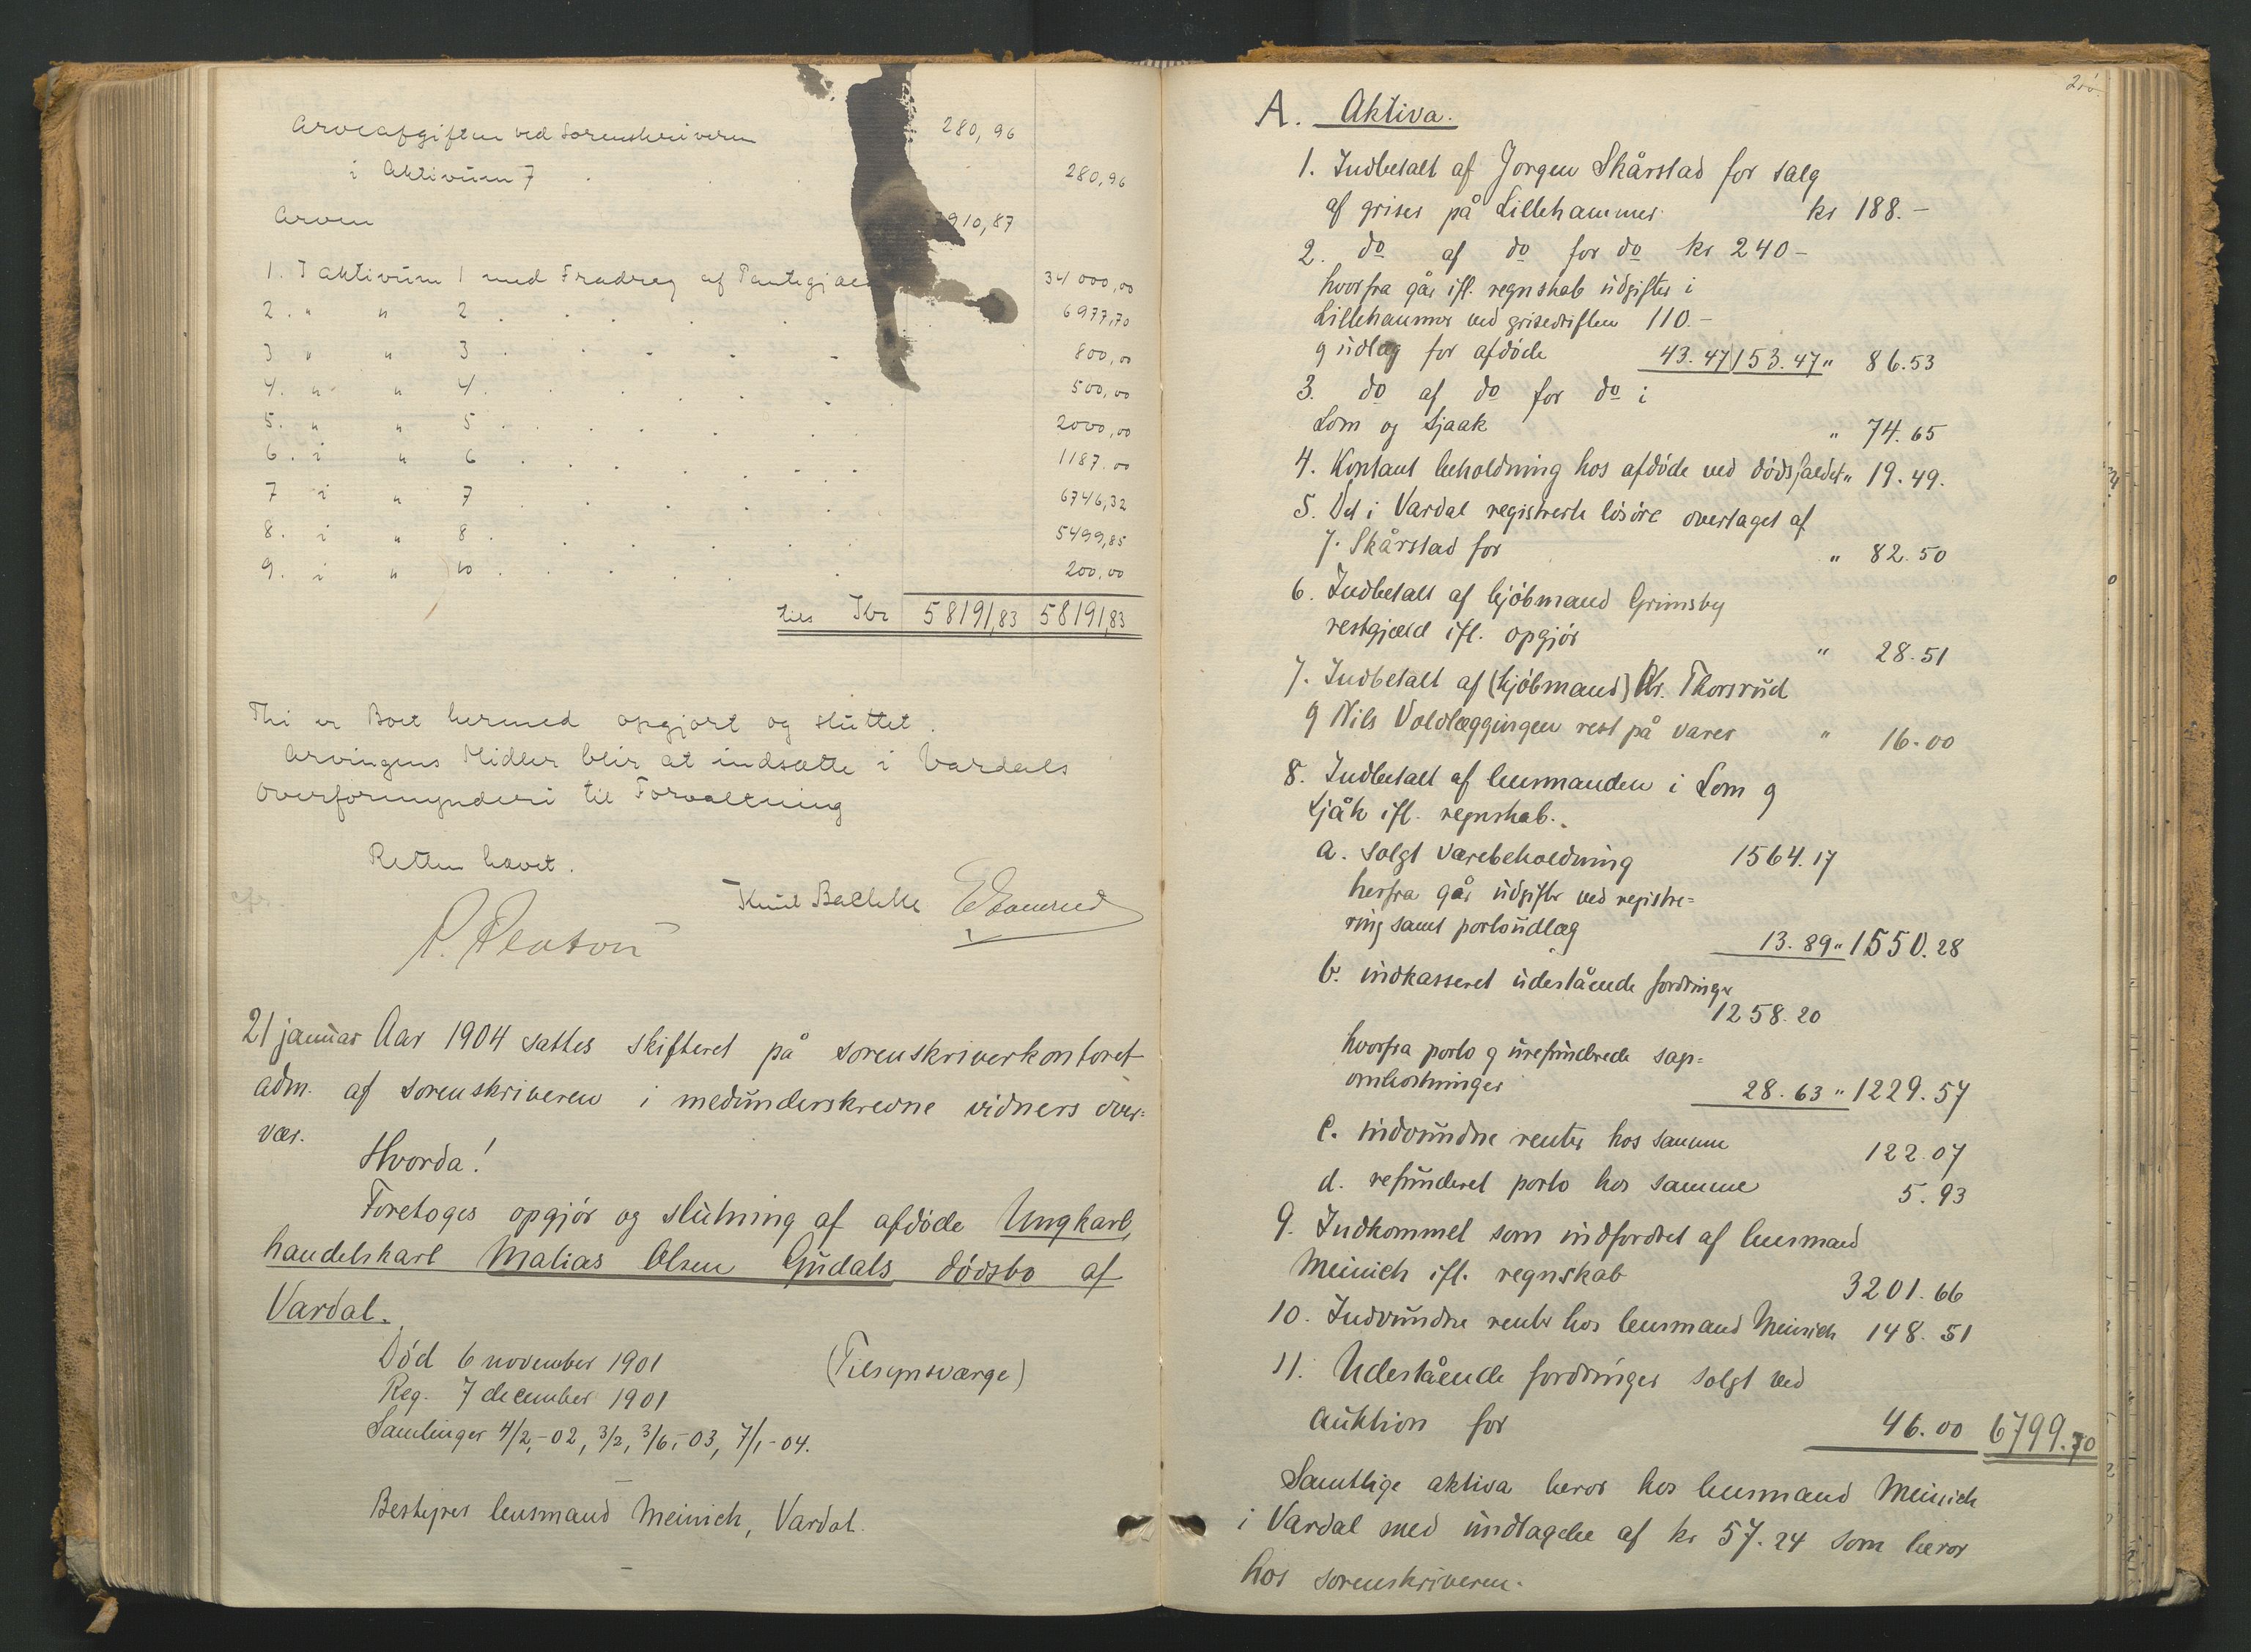 Arveafgiften ved Sorenskriveren 280,96
i Aktivum 7 280,96
Arven 910,87
1. I Aktivum 1 med Fradrag af 34000,00
2. " " 2 6977,70
3 " " 3 800,00
4. " " 4. 500,00
5. " " 5 2000,00
6. i " 6 1187.00
7 i " 7 6746,32
8. i " 8 5499,85
9. i " 10 200,00
tils Kr 58191,83 58191,83
Thi er Boet hermed opgjort og sluttet.
Arvingens Midler blir at indsætte i Vardals
Overformynderi til Forvaltning
Retten hævet.
Knut
21 januar Aar 1904 sattes skifteret på sorenskriverkontoret
adm. af sorenskriveren i medunderskrevne vidners over=
vær.
Hvorda!
Foretoges opgjør og slutning af afdøde Ungkarl,
handelskarl Matias Olsen Gudals dødsbo af
Vardal.
Død 6 november 1901 (Tilsynsværge)
Reg. 7 december 1901
Samlinger 4/2,-02, 3/2, 3/6,-03, 7/1-04.
Bestyrer lensmand Meinich, Vardal.
A. Aktiva.
1. Indbetalt af Jørgen Skårstad for salg
af griser på Lillehammer kr 188.-
2. do af do for do kr 240-
hvorfra går ifl. regnskab udgifter i
Lillehammer ved grisedriften 110.-
g udlæg for afdøde 43.47 153.47 " 86.53
3. do af do for do i
Lom og Sjaak " 74.65
4. Kontant beholdning hos afdøde ved dødsfaldet " 19.49.
5. Det i Vardal registrerte løsøre overtaget af
J. Skårstad for " 82.50
6. Indbetalt af kjøbmand Grimsby
restgjæld ifl. opgjør " 28.51
7. Indbetalt af (kjøbmand) Kr. Thorsrud
g Nils Voldlæggingen rest på varer " 16.00
8. Indbetalt af lensmanden i Lom g
Sjåk ifl. regnskab.
a. solgt varebeholdning 1564.17
herfra går udgifter ved registre=
ring samt portoudlæg 13.89 " 1550.28
b. indkasseret udestående fordringer
1258.20
hvorfra porto g urefunderede sags=
omkostninger 28.63 " 1229.57
c. indvundne renter hos samme 122.07
d. refunderet porto hos samme 5.93
9. Indkommet som indfordret af lensmand
Meinich ifl. regnskab 3201.66
10. Indvundne renter hos lensmand Meinich 148.51
11. Udestående fordringer solgt ved
auktion for 46.00 6799.70
Samtlige aktiva beror hos lensmand Meinich
i Vardal med undtagelse af kr 57.24 som beror
hos sorenskriveren.